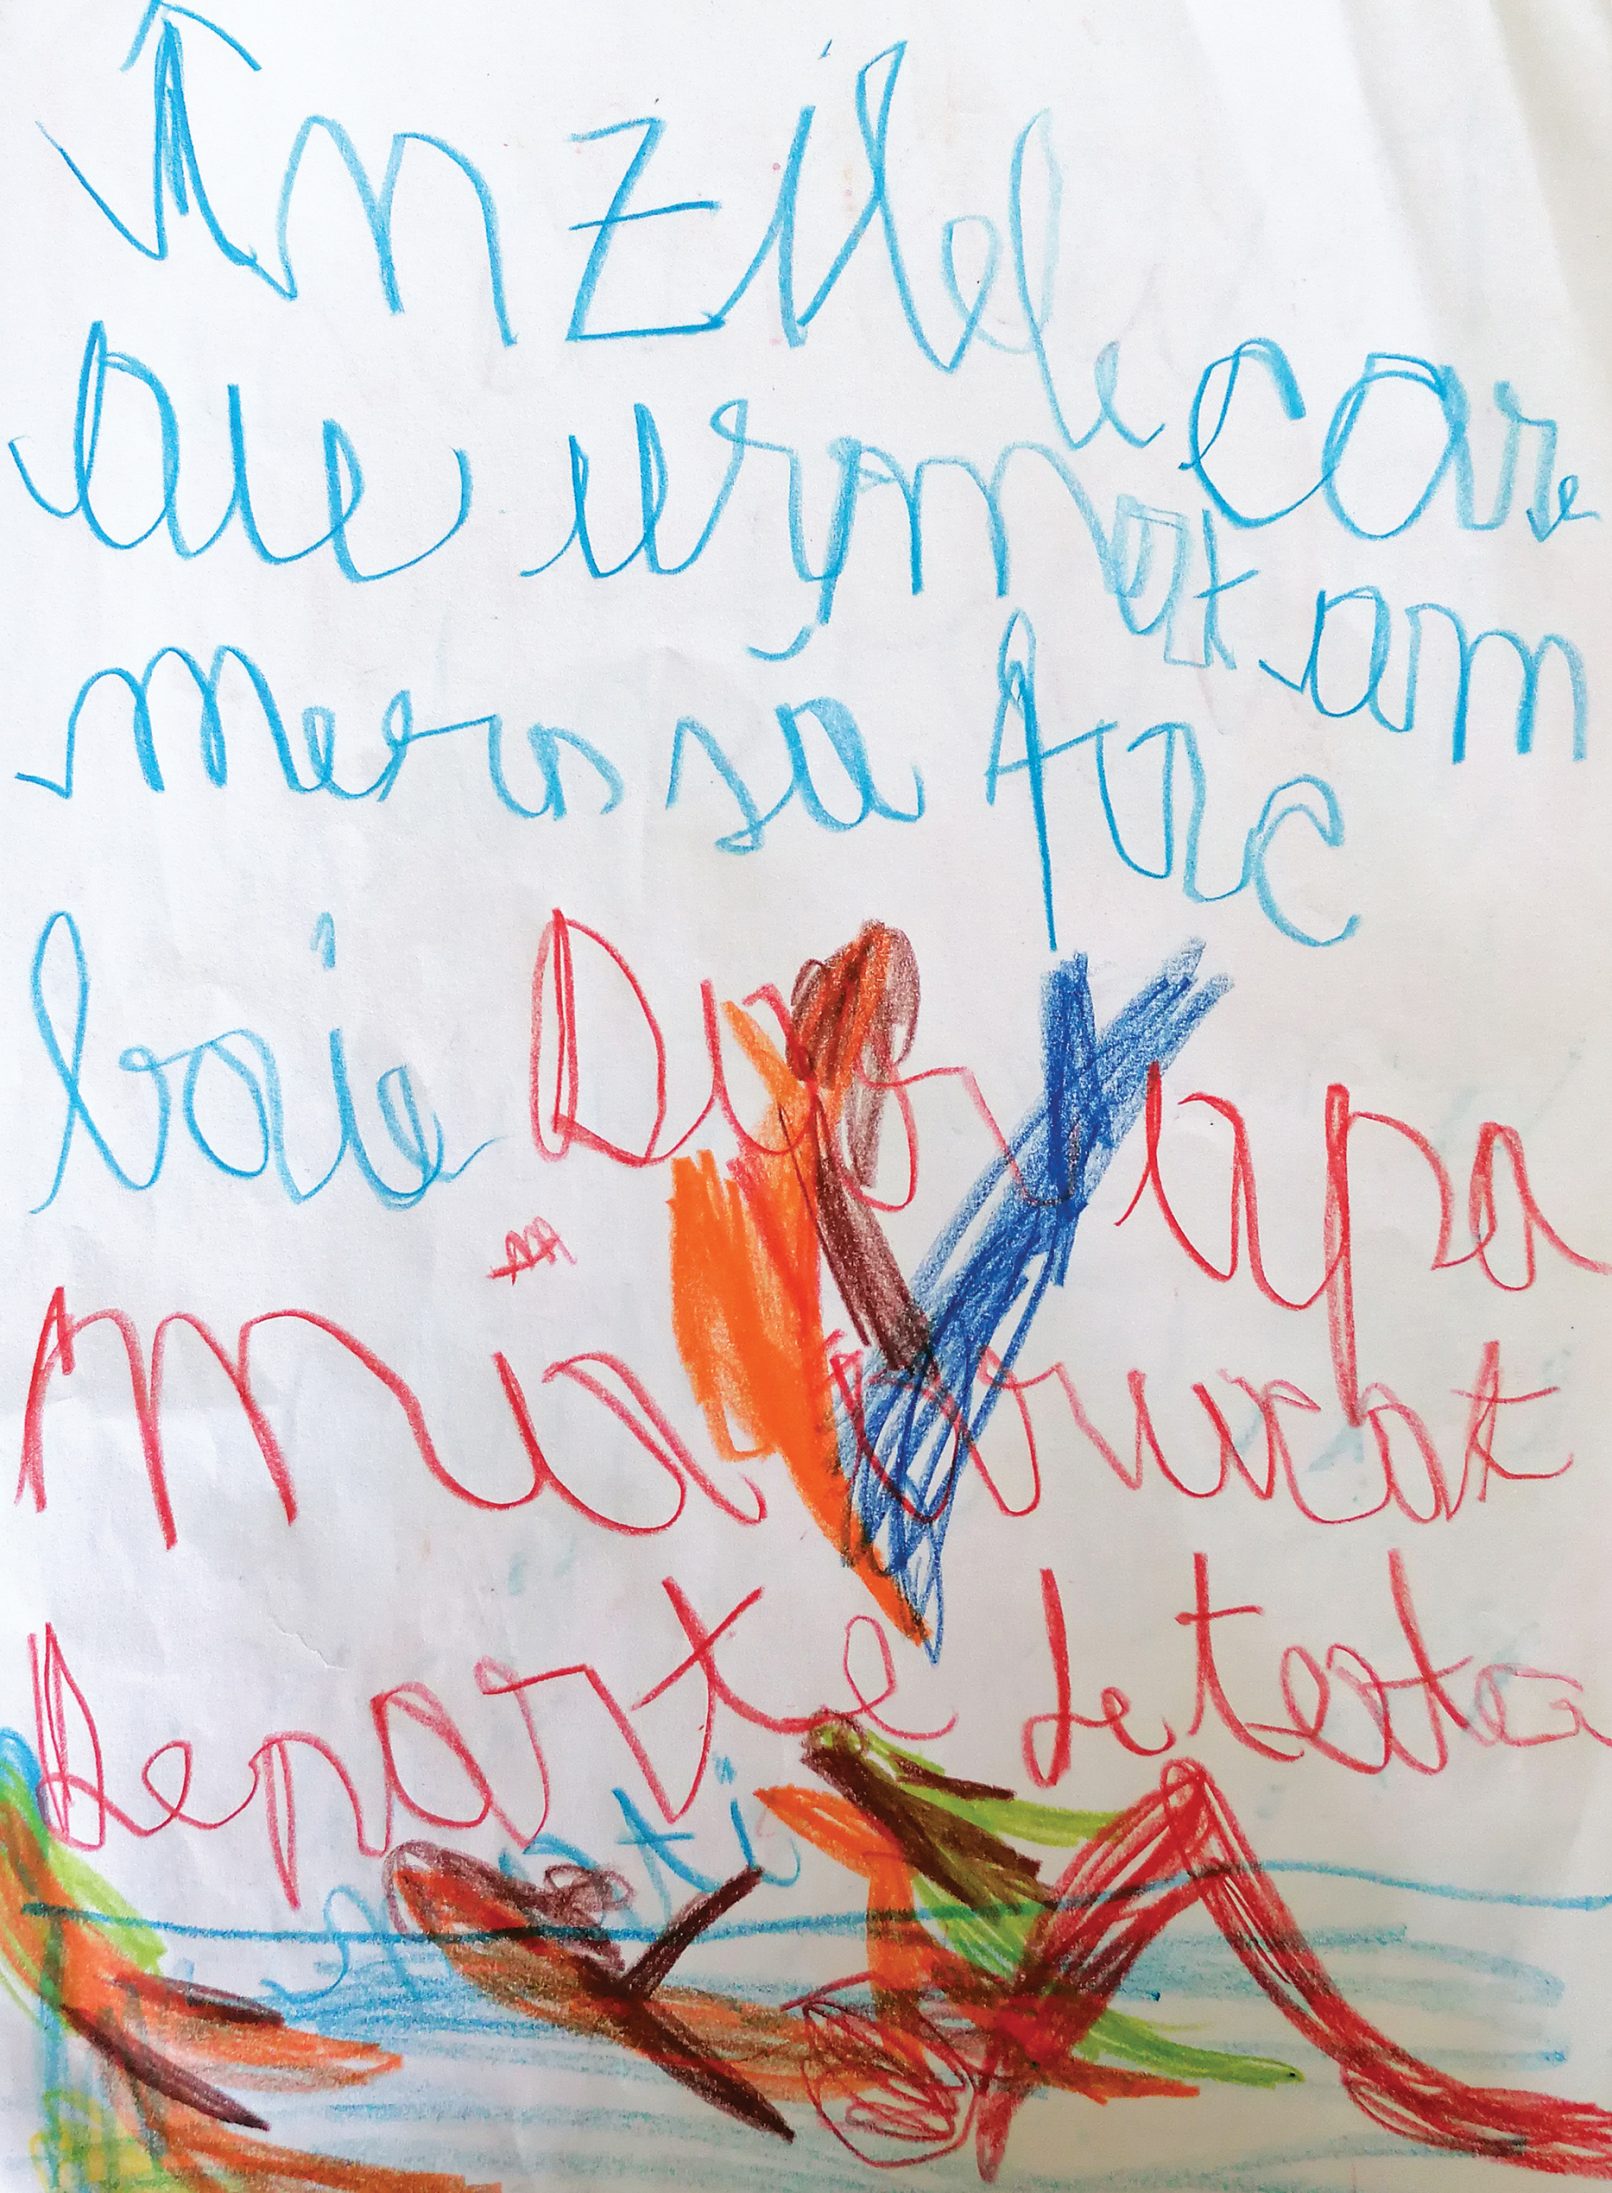 În zilele care
au urmat am
mers să fac
baie Dar apa
mia aruncat
departe de